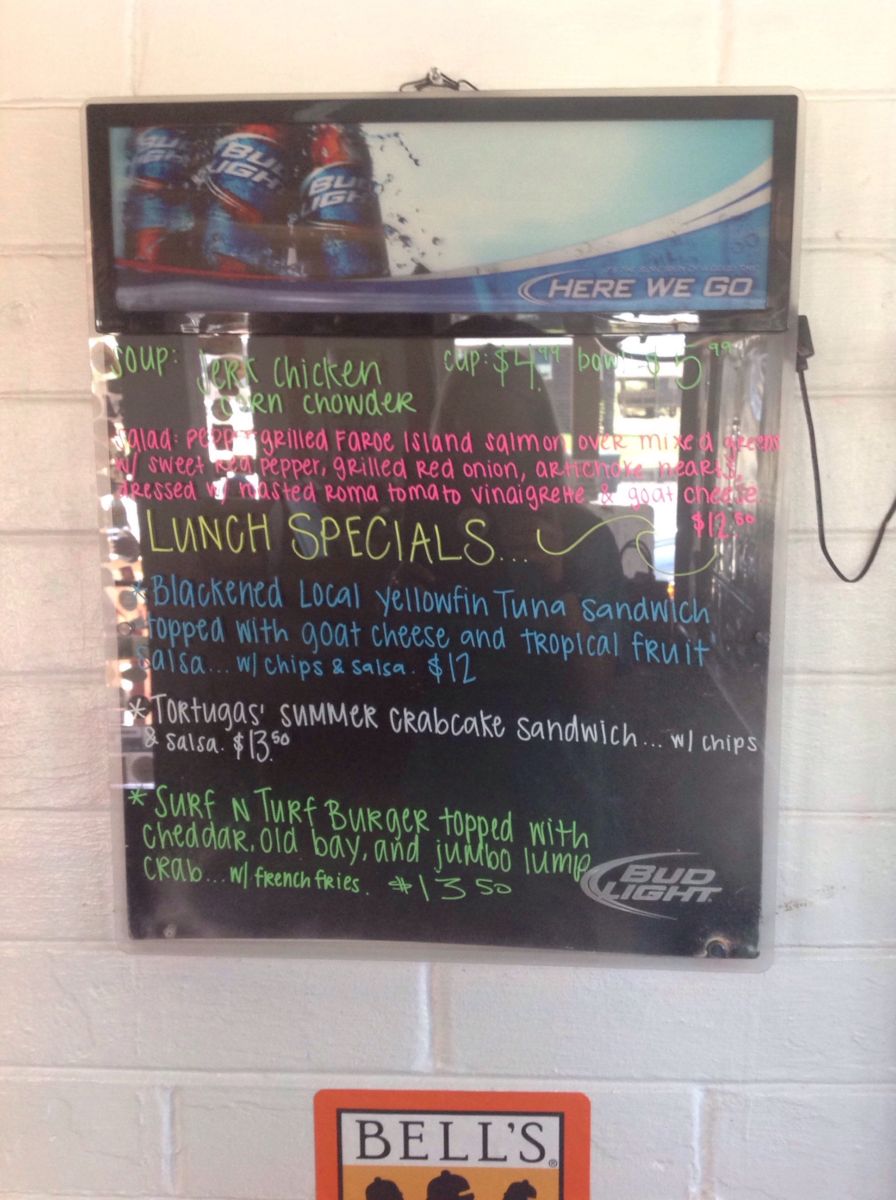 BUD LIGHT
BUD LIGHT
BUD LIGHT
HERE WE GO
Soup: Jerk Chicken cup: $4.99 bowl $5.99
corn chowder
Salad: Pepper grilled Faroe Island salmon over mixed greens
w/ sweet red pepper, grilled red onion, artichoke hearts,
dressed w/ roasted roma tomato vinaigrette & goat cheese
$12.50
LUNCH SPECIALS...
* Blackened Local yellowfin Tuna sandwich
topped with goat cheese and tropical fruit
salsa... w/ chips & salsa. $12
* Tortugas' summer crabcake sandwich... w/ chips
& salsa. $13.50
* Surf N Turf Burger topped with
cheddar, old bay, and jumbo lump
crab... w/ french fries. $13 50
BUD
LIGHT
BELL'S